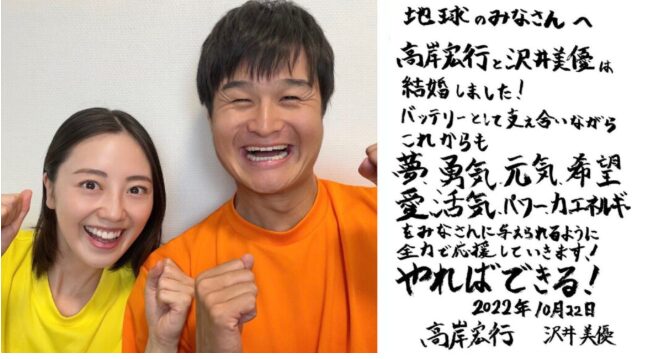 地球のみなさんへ
高岸宏行と沢井美優は
結婚しました!
バッテリーとして支え合いながら
これからも
夢、勇気、元気、希望
愛、活気、パワー、力、エネルギー
をみなさんに与えられるように
全力で応援していきます!
やればできる!
2022年10月22日
高岸宏行 沢井美優